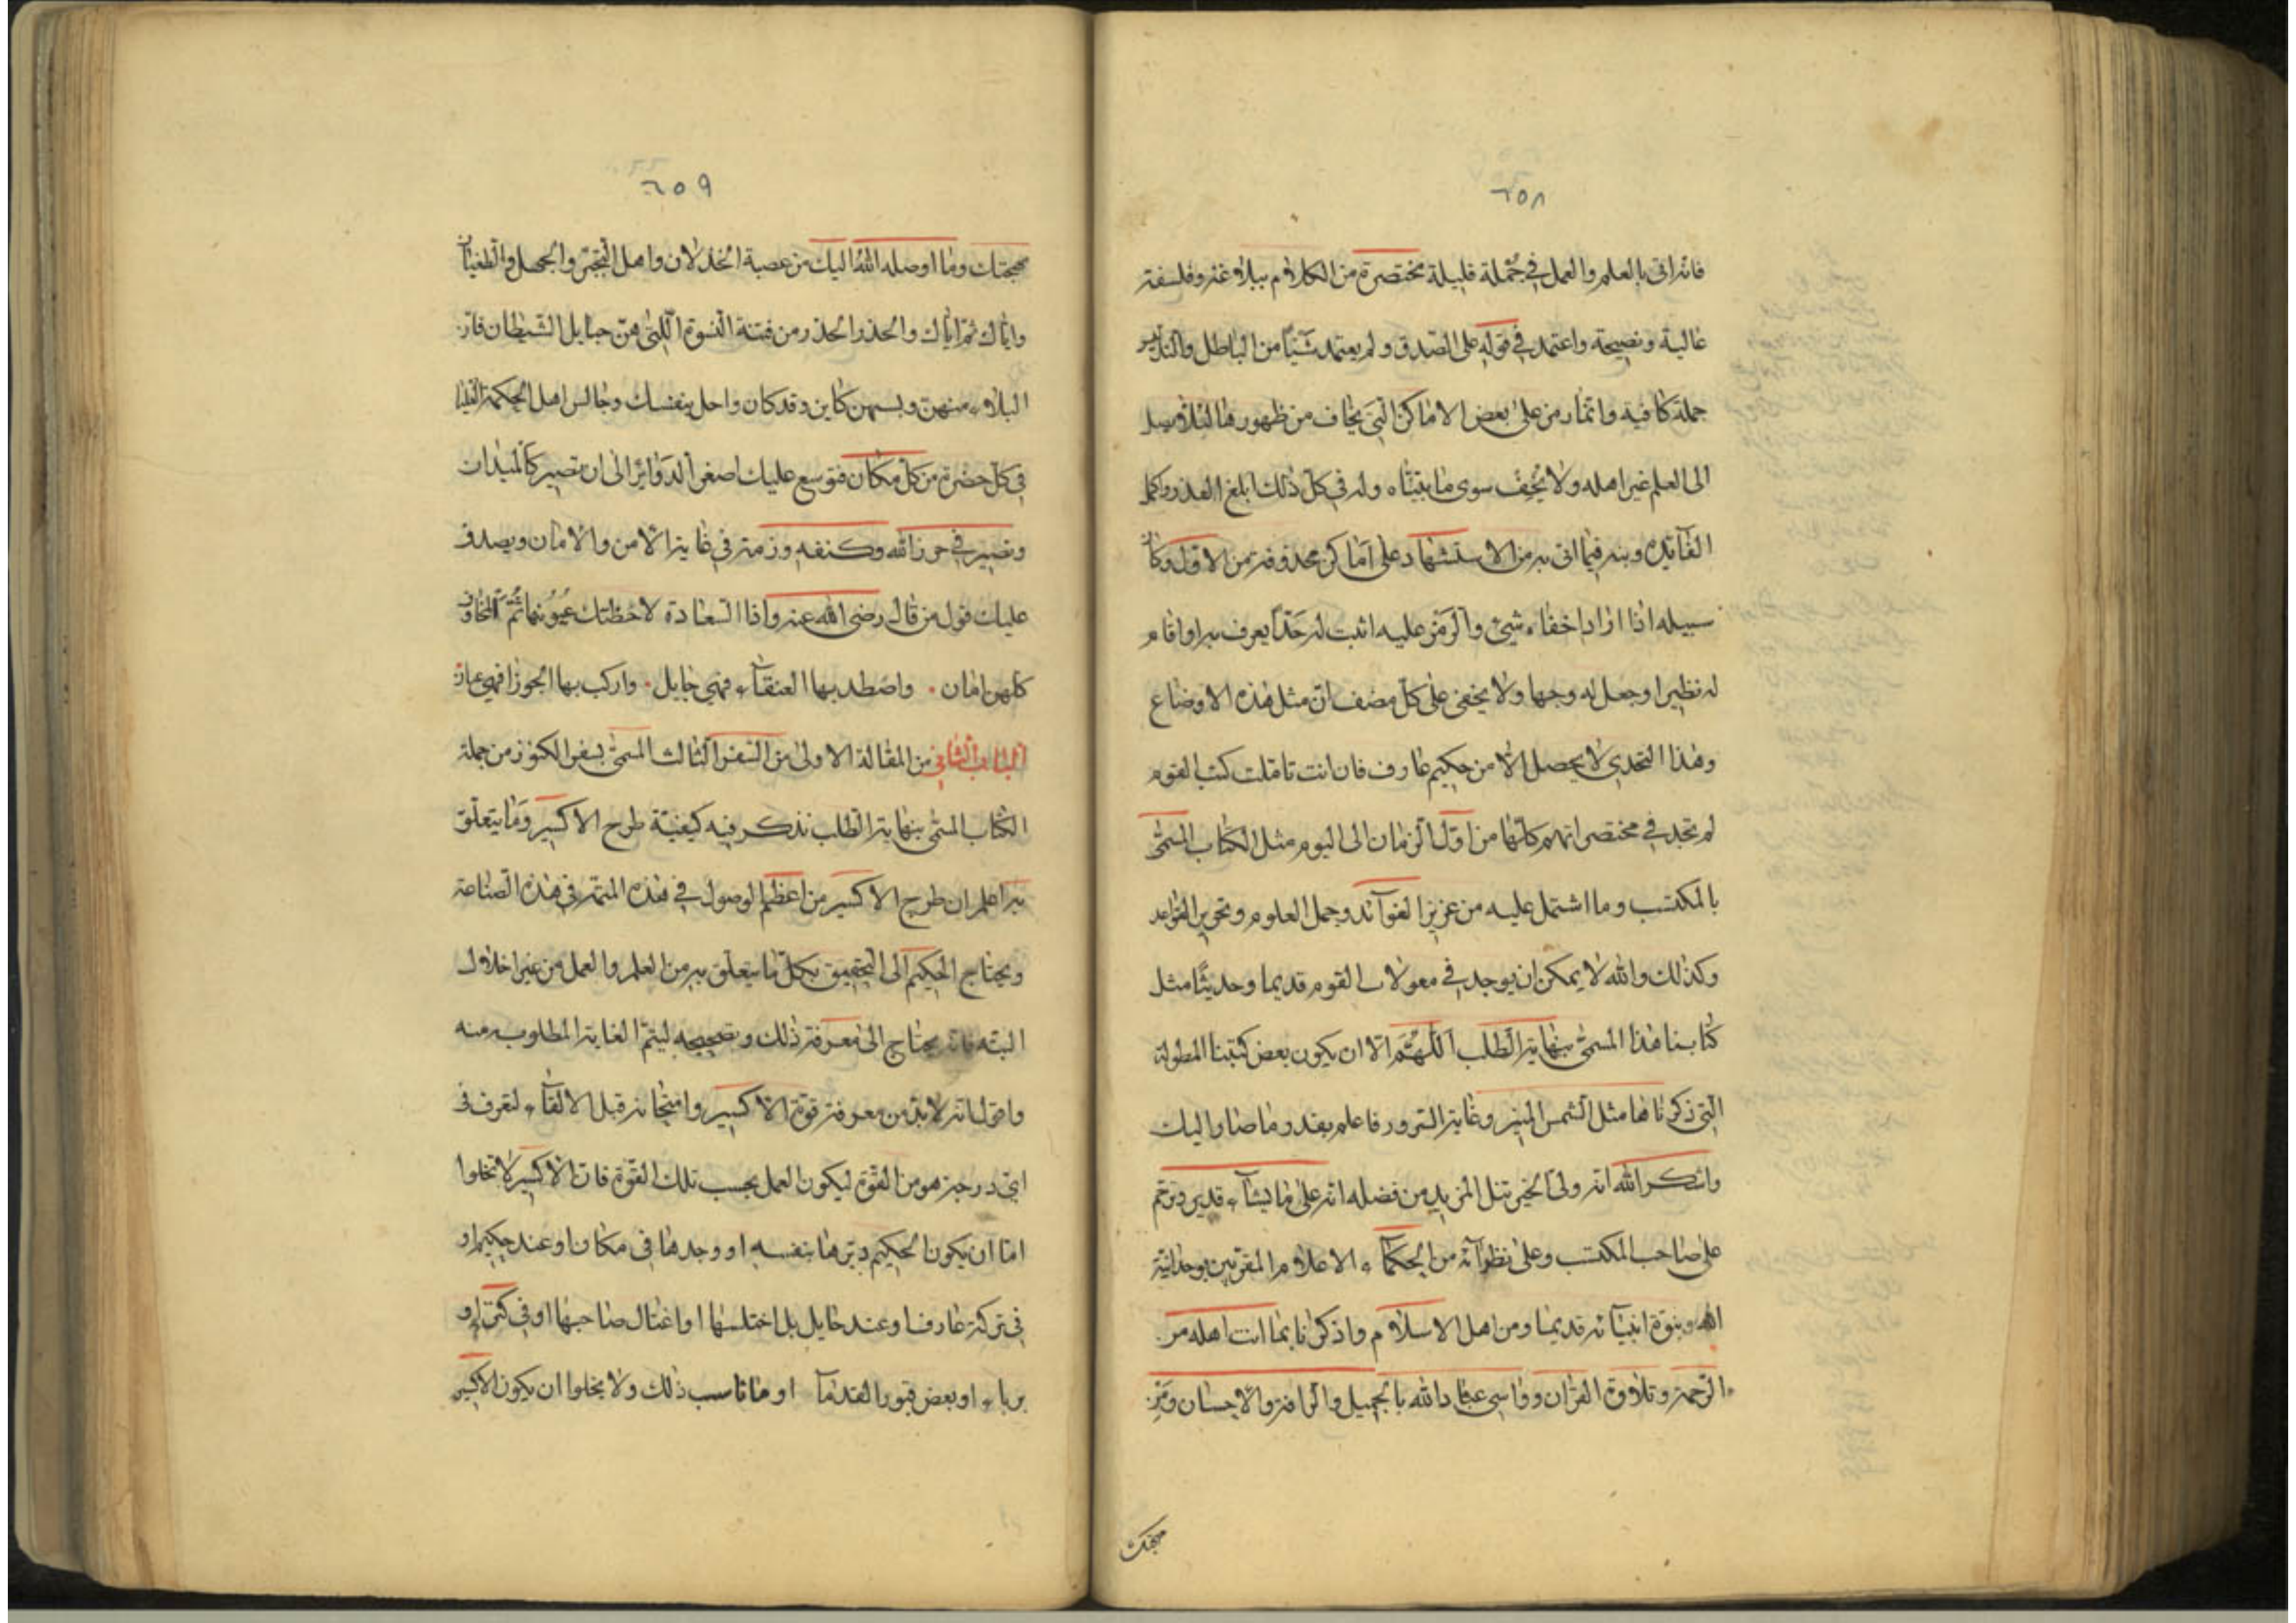 ٦٥٨
فانه اتى بالعلم والعمل في جملة قليلة مختصرة من الكلام ببلاغة وفلسفة
عالية ونصيحة واعتمد في قوله على الصدق ولم يعتمد شيئا من الباطل والتدليس
جملة كافية وانما رمز على بعض الاماكن التي يخاف من ظهورها ليلا يصل
الى العلم غير اهله ولا يخف سوى ما بيناه وله في كل ذلك ابلغ العذر واكمل
الفائده وبنه فيما اتى به من الاستشهاد على اماكن محذوفة من الاول وكان
سبيله اذا اراد اخفاء شيئ والرمز عليه اثبت له حدا يعرف به او اقام
له نظيرا وجعل له وجها ولا يخفى على كل مصنف ان مثل هذه الاوضاع
وهذا التحدي لا يحصل الا من حكيم عارف فان انت تاملت كتب القوم
لم تجد في مختصراتهم كلها من اول الزمان الى اليوم مثل الكتاب المسمى
بالمكتسب وما اشتمل عليه من عزيز الفوآئد وجمل العلوم وتحرير القواعد
وكذلك والله لا يمكن ان يوجد في معولات القوم قديما وحديثا مثل
كتابنا هذا المسمى بنهاية الطلب اللهم الا ان يكون بعض كتبنا المطولة
التي ذكرناها مثل الشمس المنير وغاية السرور فاعلم بقدر ما صار اليك
واشكر الله انه ولي الخير تنل المزيد من فضله انه على ما يشآء قدير وترحم
على صاحب المكتسب وعلى نظرآئه من الحكماء الاعلام المقرين بوحدانية
الله وبنوة انبيآئه قديما ومن اهل الاسلام واذكرنا بما انت اهله من
الرحمة وتلاوة القران وواسي عباد الله بالجميل والرافة والاحسان وميز
مهجتك
٦٥٩
مهجتك وما اوصله الله اليك من عصبة الخذلان واهل التجبر والجهل والطغيان
واياك ثم اياك والحذر الحذر من فتنة النسوة اللتي هن حبايل الشيطان فان
البلاء منهن وبسببهن كاين وقد كان واحل بنفسك وجالس اهل الحكمة العليا
في كل حضرة من كل مكان فتوسع عليك اصغر الدوائر الى ان تصير كالميدان
وتصير في حرز الله وكنفه وزمته في غاية الامن والامان ويصدق
عليك قول من قال رضى الله عنه واذا السعادة لاحظتك عيونها نم فالمخاوف
كلهن امان . واصطد بها العنقآء فهي حبايل . واركب بها الجوزا فهي عنان
الباب الثاني من المقالة الاولى من السفر الثالث المسمى بسفر الكنوز من جملة
الكتاب المسمى بنهاية الطلب نذكر فيه كيفية طرح الاكسير وما يتعلق
به اعلم ان طرح الاكسير من اعظم الوصول في هذه المتمة في هذه الصناعة
ويحتاج الحكيم الى التحقيق بكل ما يتعلق به من العلم والعمل من غير اخلال
البته فانه يحتاج الى معرفة ذلك وتصحيحه ليتم الغاية المطلوبه منه
واقول انه لابد من معرفة قوة الاكسير وامتحانه قبل الالقآء لتعرف في
اي درجة هو من القوة ليكون العمل بحسب تلك القوة فان الاكسير لا تخلوا
اما ان يكون الحكيم دبرها بنفسه او وجدها في مكان او عند حكيم او
في تركة عارف او عند خايل بل اختلسها او اغتال صاحبها او في كنز او
بربا او بعض قبور القدمآ او ما ناسب ذلك ولا يخلوا ان يكون الاكسير